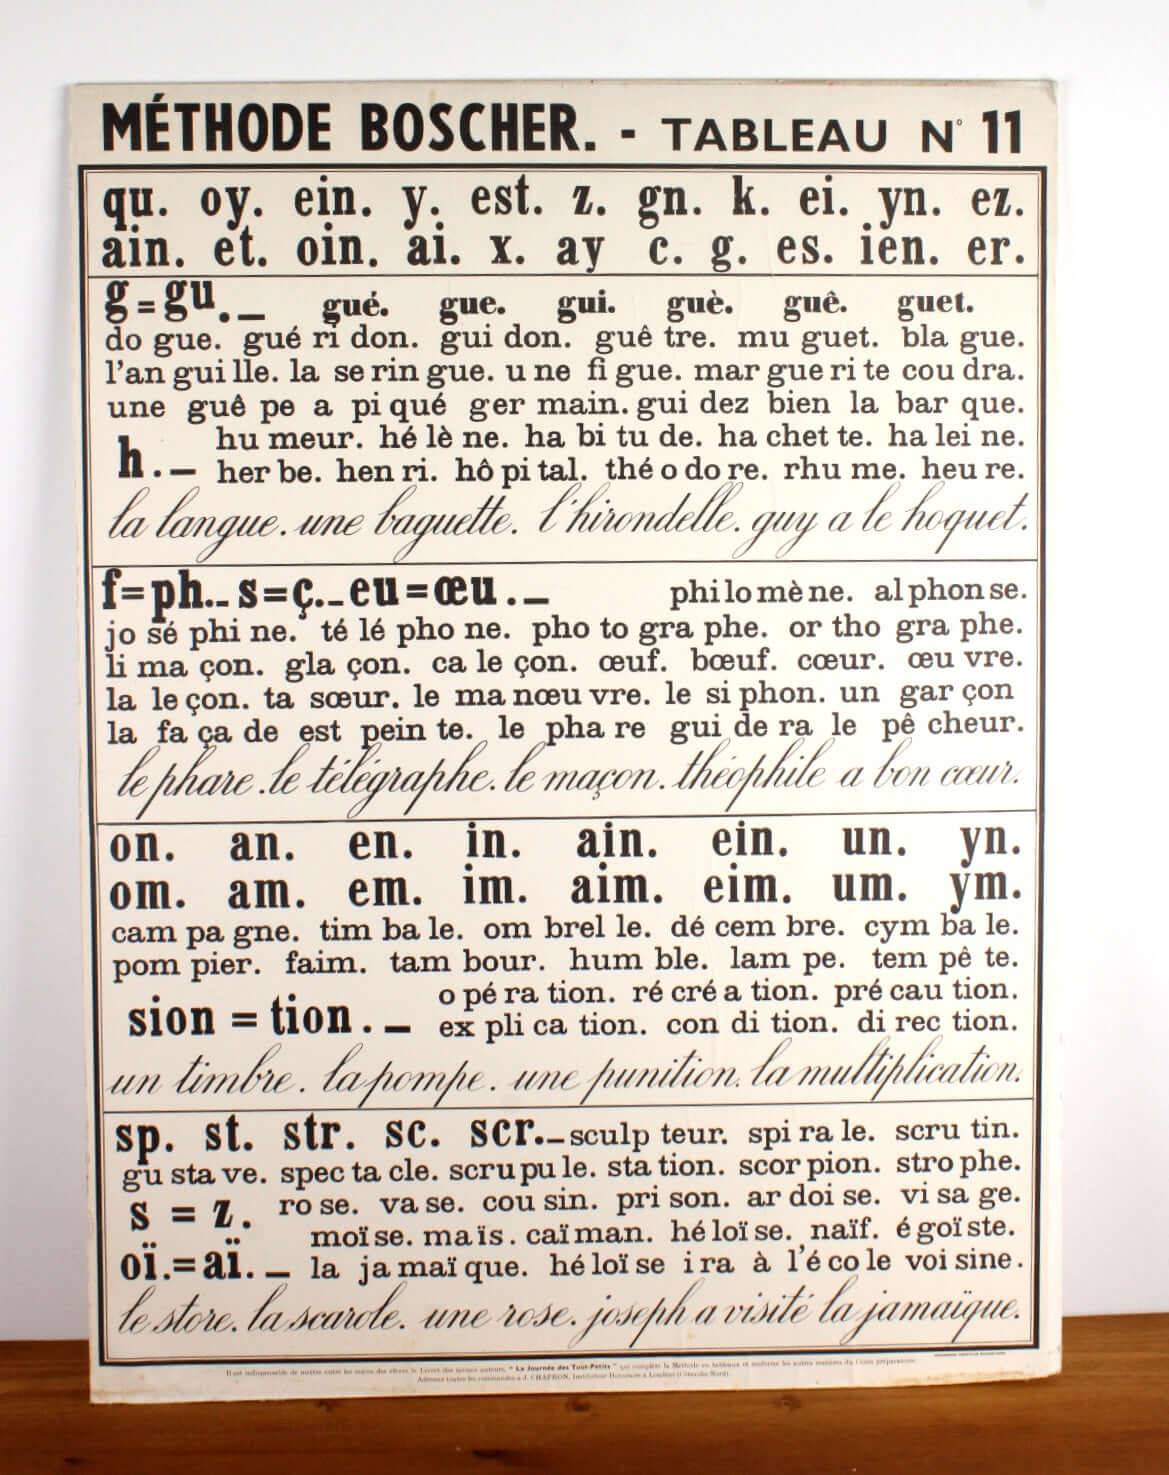 MÉTHODE BOSCHER. - TABLEAU N° 11
qu. oy. ein. y. est. z. gn. k. ei. yn. ez.
ain. et. oin. ai. x. ay c. g. es. ien. er.
g = gu. — gué. gue. gui. guè. guê. guet.
do gue. gué ri don. gui don. guê tre. mu guet. bla gue.
l'an gui lle. la se rin gue. u ne fi gue. mar gue ri te cou dra.
une guê pe a pi qué ger main. gui dez bien la bar que.
h. — hu meur. hé lè ne. ha bi tu de. ha chet te. ha lei ne.
her be. hen ri. hô pi tal. thé o do re. rhu me. heu re.
la langue. une baguette. l'hirondelle. guy a le hoquet.
f = ph.. - s = ç.. - eu = œu . — phi lo mè ne. al phon se.
jo sé phi ne. té lé pho ne. pho to gra phe. or tho gra phe.
li ma çon. gla çon. ca le çon. œuf. bœuf. cœur. œu vre.
la le çon. ta sœur. le ma nœu vre. le si phon. un gar çon
la fa ça de est pein te. le pha re gui de ra le pê cheur.
le phare. le télégraphe. le maçon. théophile a bon cœur.
on. an. en. in. ain. ein. un. yn.
om. am. em. im. aim. eim. um. ym.
cam pa gne. tim ba le. om brel le. dé cem bre. cym ba le.
pom pier. faim. tam bour. hum ble. lam pe. tem pê te.
sion = tion. — o pé ra tion. ré cré a tion. pré cau tion.
ex pli ca tion. con di tion. di rec tion.
un timbre. la pompe. une punition. la multiplication.
sp. st. str. sc. scr. — sculp teur. spi ra le. scru tin.
gu sta ve. spec ta cle. scru pu le. sta tion. scor pion. stro phe.
s = z. ro se. va se. cou sin. pri son. ar doi se. vi sa ge.
moï se. ma ïs. caï man. hé loï se. naïf. é goï ste.
oï. = aï. — la ja maï que. hé loï se i ra à l'é co le voi sine.
le store. la scarole. une rose. joseph a visité la jamaïque.
Il est indispensable de mettre entre les mains des élèves le Livret des mêmes auteurs, "La Journée des Tout-Petits" qui complète la Méthode en tableaux et renferme les autres matières du Cours préparatoire.
Adresser toutes les commandes à J. CHAPRON, Instituteur Honoraire à Loudéac (Côtes-du-Nord).